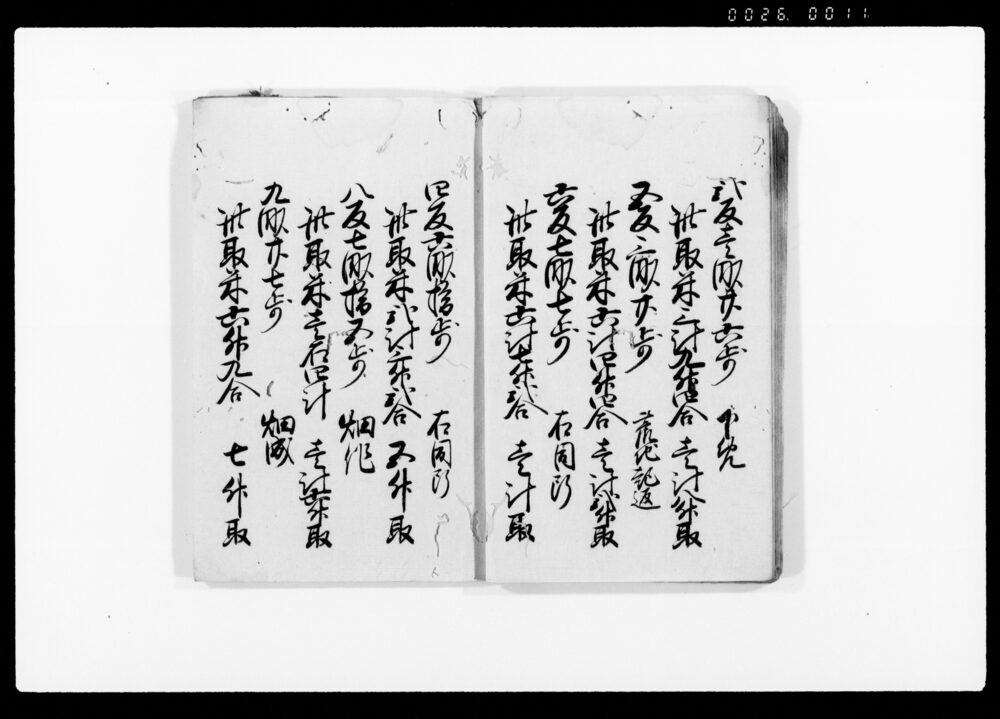 0026.0011
弐反壱畝廿六歩 下免
此取米三斗九升四合 壱斗八升取
五反三畝廿歩 荒地起返
此取米六斗四升四合 壱斗弐升取
六反七畝七歩 右同断
此取米六斗七升弐合 壱斗取
四反六畝拾歩 右同断
此取米弐斗三升弐合 五升取
八反七畝拾五歩 畑作
此取米壱石四斗 壱斗六升取
九畝廿七歩 畑成
此取米六升九合 七升取